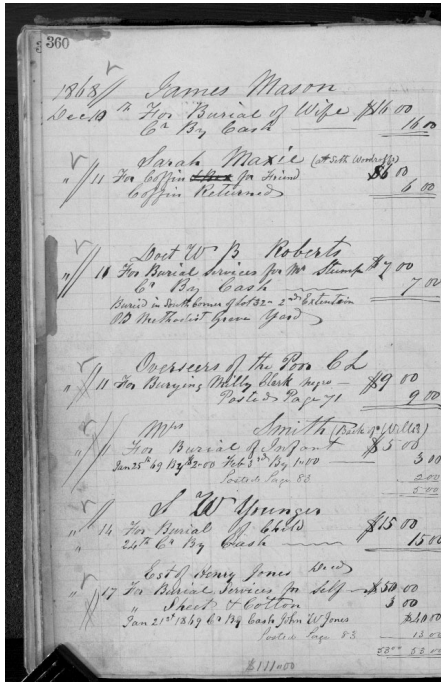 360
1868 James Mason
Dec 10th For Burial of Wife $16 00
Cr By Cash 16 00
Sarah Maxie (at Seth Woodroffs)
" 11 For Coffin for Friend $6 00
Coffin Returned 6 00
Doct W B Roberts
" 16 For Burial Services for Mr Stump $7 00
Cr By Cash 7 00
Buried in South Corner of Lot 32 - 2nd Extention
Old Methodist Grave Yard
Overseers of the Poor C L
" 11 For Burying Milly Clark negro $9 00
Posted Page 71 9 00
Mrs Smith (Back of Wills)
" 11 For Burial of Infant $5 00
Jan 25th 69 By $2=00 Feb 3rd By 1=00 3 00
Posted Page 83 2 00
5 00
S W Younger
" 14 For Burial of Child $15 00
" 24th Cr By Cash 15 00
Est of Henry Jones Decd
" 17 For Burial Services for Self $50 00
" Sheet & Cotton 3 00
Jan 21st 1869 Cr By Cash John W Jones $40 00
Posted Page 83 13 00
53 00 53 00
$111=00